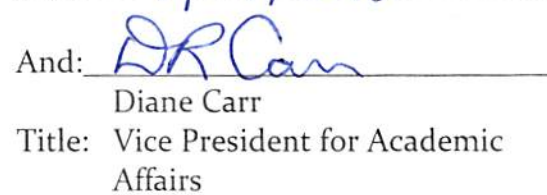 And: DR Carr
Diane Carr
Title: Vice President for Academic
Affairs